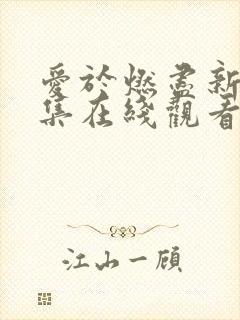 愛於燃盡新
集在綫觀看
江山一顧